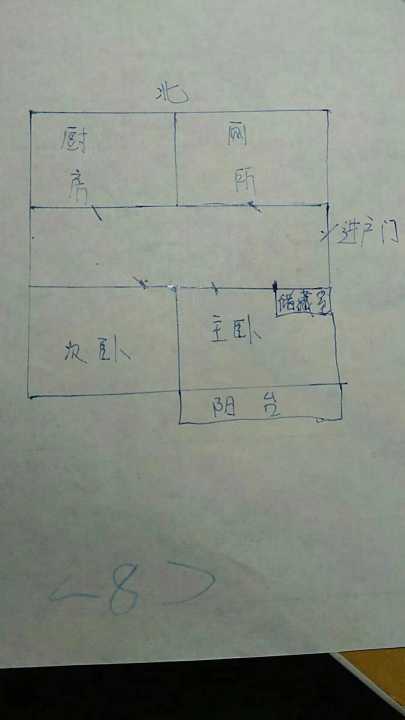 北
厨房
厕所
进户门
储藏室
次卧
主卧
阳台
<8>